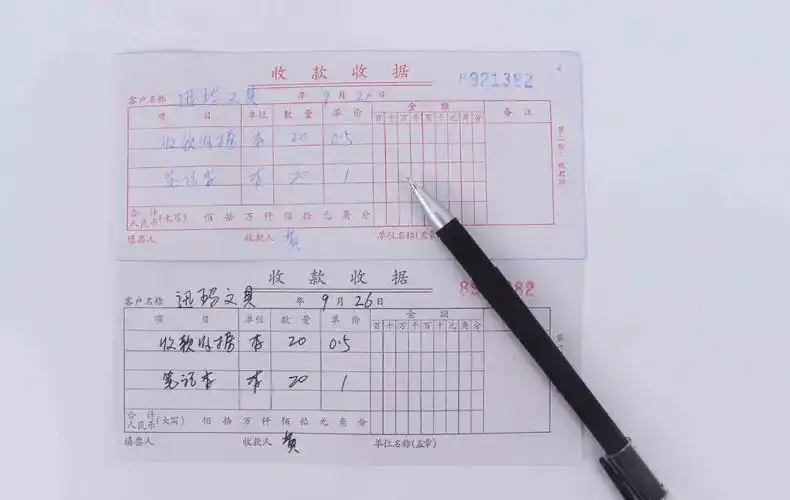 收款收据 8921382
客户名称 迅玛文具 年 9 月 26 日
项 目 单位 数量 单价 金额 备注
百 十 万 千 百 十 元 角 分
收款收据 本 20 0.5
笔记本 本 20 1
合计人民币(大写) 佰 拾 万 仟 佰 拾 元 角 分
填票人 收款人 黄 单位名称(盖章
收款收据 89 82
客户名称 迅玛文具 年 9 月 26 日
项 目 单位 数量 单价 金额
百 十 万 千 百 十 元 角 分
收款收据 本 20 0.5
笔记本 本 20 1
合计人民币(大写) 佰 拾 万 仟 佰 拾 元 角 分
填票人 收款人 黄 单位名称(盖章)